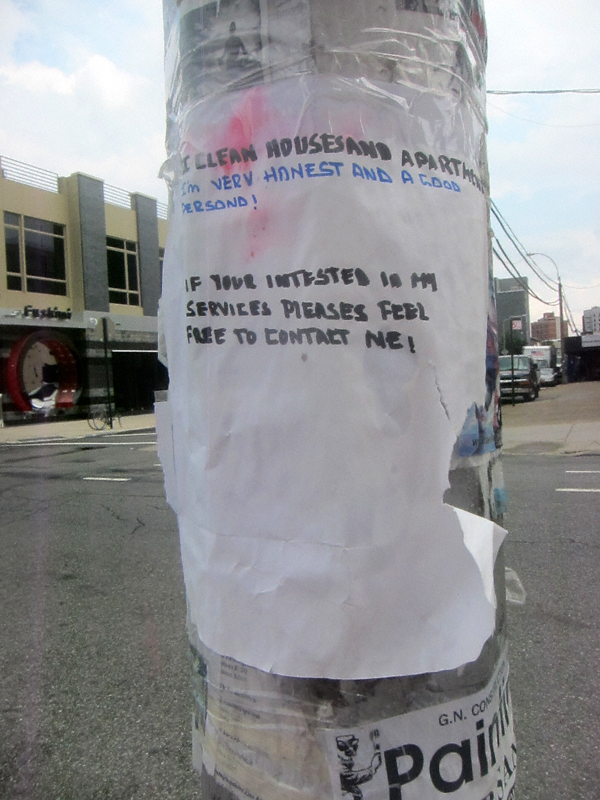 I CLEAN HOUSESAND APARTMEN
I'm VERY HONEST AND A GOOD
PERSOND!
IF YOUR INTESTED IN MY
SERVICES PLEASES FEEL
FREE TO CONTACT ME!
Fuskini
G.N. CONS
Paintin